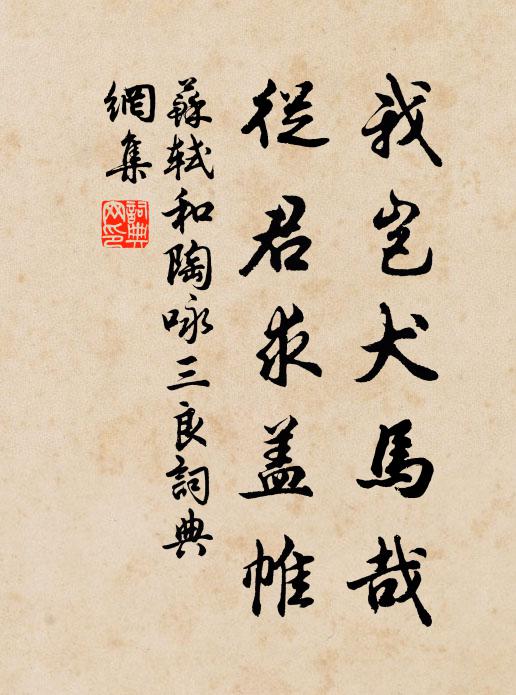 我岂犬馬哉
從君求盖帷
蘇軾和陶咏三良詞典
網集
詞典网印